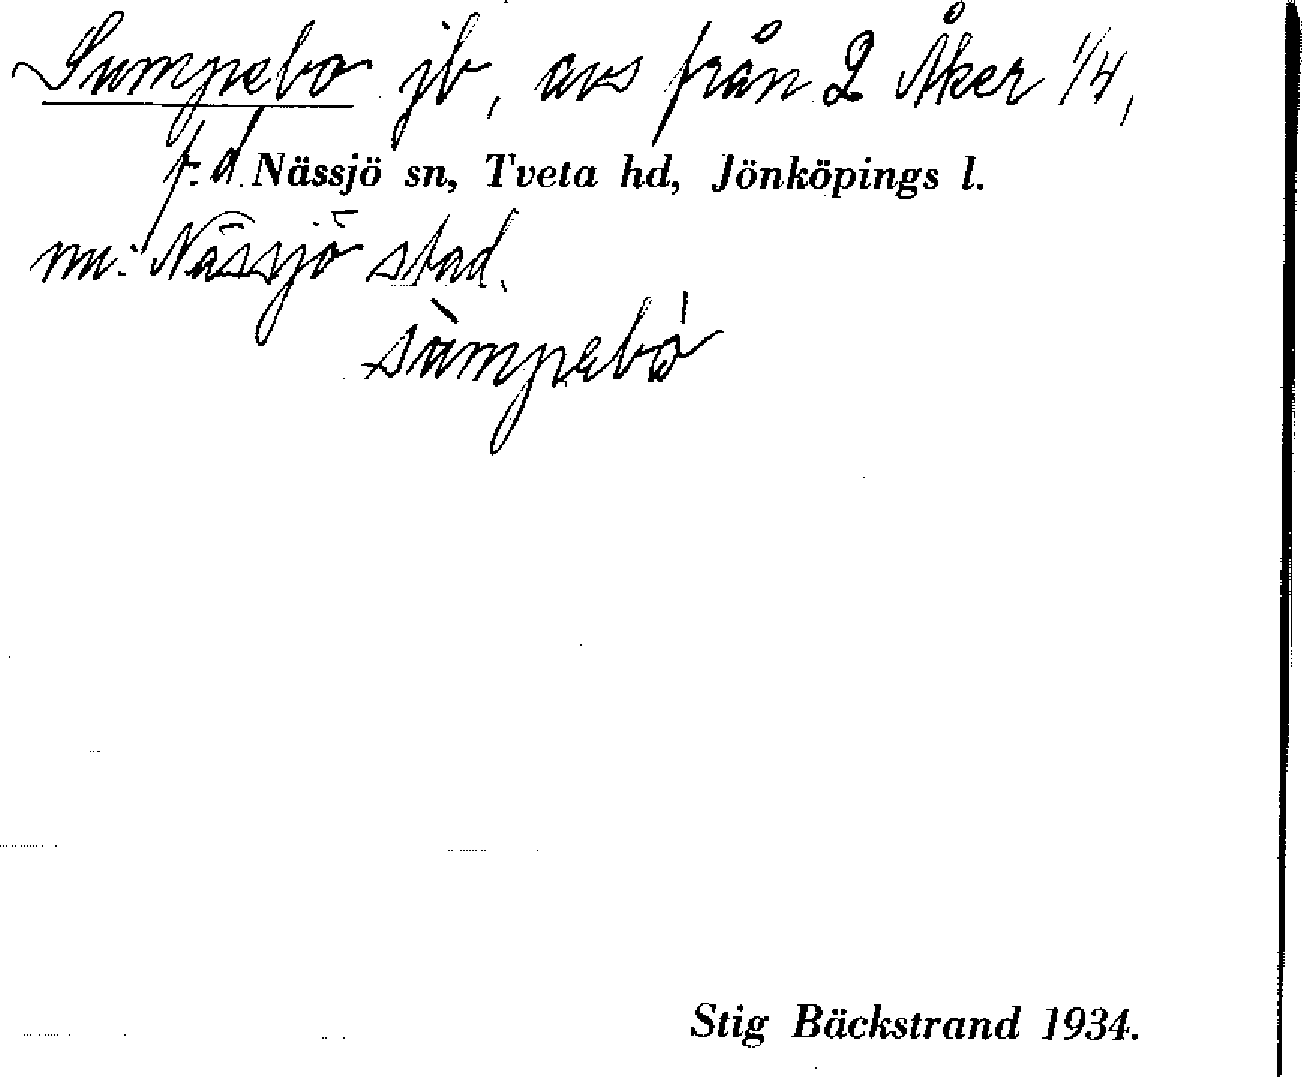 Sumpebo jb, avs från 2 Åker 1/4,
f. d. Nässjö sn, Tveta hd, Jönköpings l.
nu: Nässjö stad.
sùmpebó
Stig Bäckstrand 1934.